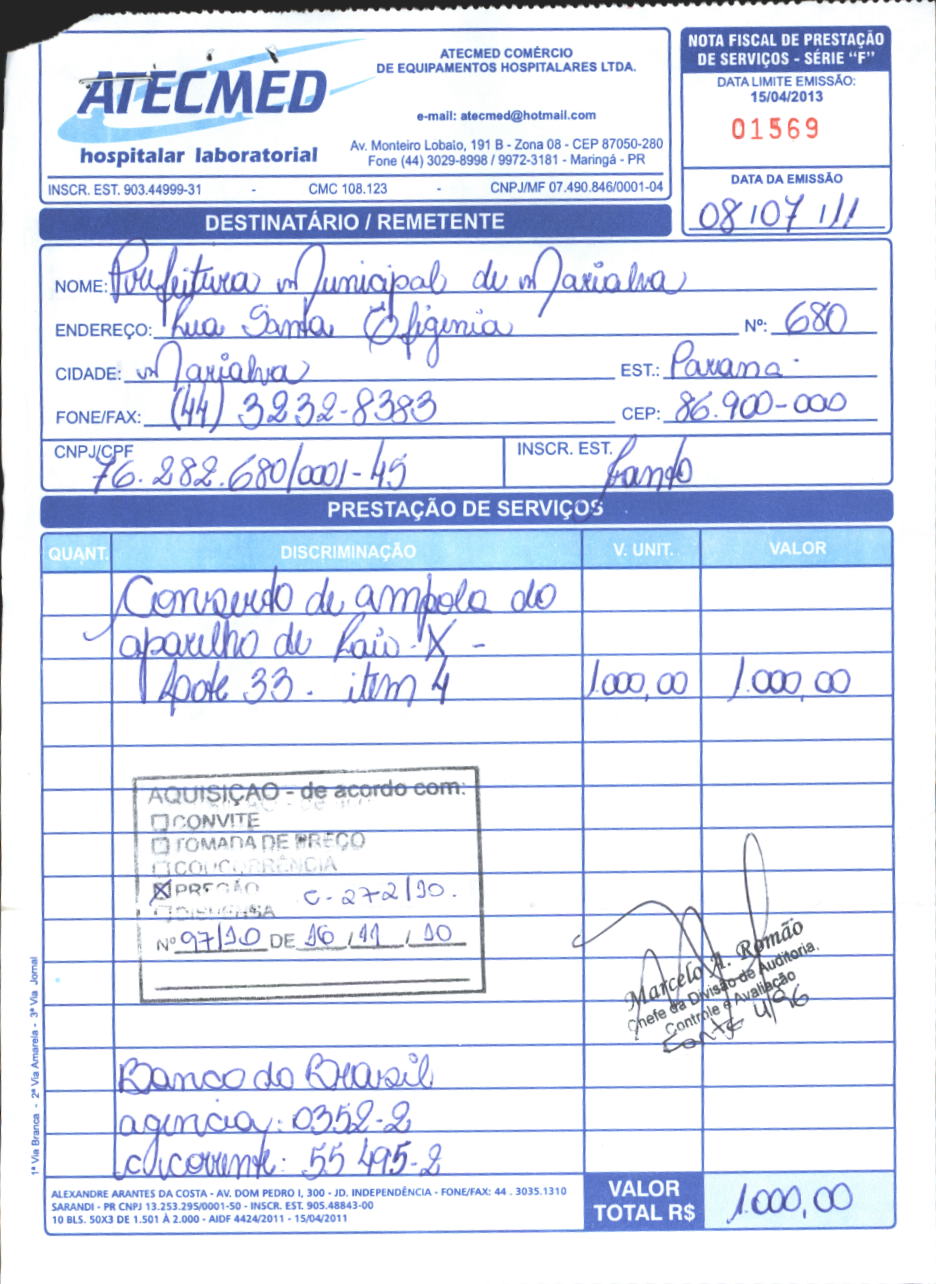 ATECMED
hospitalar laboratorial
ATECMED COMÉRCIO
DE EQUIPAMENTOS HOSPITALARES LTDA.
e-mail: atecmed@hotmail.com
Av. Monteiro Lobato, 191 B - Zona 08 - CEP 87050-280
Fone (44) 3029-8998 / 9972-3181 - Maringá - PR
INSCR. EST. 903.44999-31 - CMC 108.123 - CNPJ/MF 07.490.846/0001-04
NOTA FISCAL DE PRESTAÇÃO
DE SERVIÇOS - SÉRIE "F"
DATA LIMITE EMISSÃO:
15/04/2013
01569
DATA DA EMISSÃO
08/07/11
DESTINATÁRIO / REMETENTE
NOME: Prefeitura Municipal de Marialva
ENDEREÇO: Rua Santa Efigenia Nº: 680
CIDADE: Marialva EST.: Parana
FONE/FAX: (44) 3232-8383 CEP: 86.900-000
CNPJ/CPF 76.282.680/0001-45 INSCR. EST.
PRESTAÇÃO DE SERVIÇOS
QUANT. DISCRIMINAÇÃO V. UNIT. VALOR
Conserto de ampola do
aparelho de Raio-X -
Lote 33. item 4 1.000,00 1.000,00
AQUISIÇÃO - de acordo com:
CONVITE
TOMADA DE PREÇO
CONCORRÊNCIA
PREGÃO C-272/10.
DISPENSA
Nº 97/10 DE 16/11/10
Marcelo A. Romão
Chefe da Divisão de Auditoria,
Controle e Avaliação
Fonte 496
Banco do Brasil
agencia: 0352-2
c/corrente: 55 495-2
1ª Via Branca - 2ª Via Amarela - 3ª Via Jornal
ALEXANDRE ARANTES DA COSTA - AV. DOM PEDRO I, 300 - JD. INDEPENDÊNCIA - FONE/FAX: 44 . 3035.1310
SARANDI - PR CNPJ 13.253.295/0001-50 - INSCR. EST. 905.48843-00
10 BLS. 50X3 DE 1.501 À 2.000 - AIDF 4424/2011 - 15/04/2011
VALOR
TOTAL R$ 1.000,00